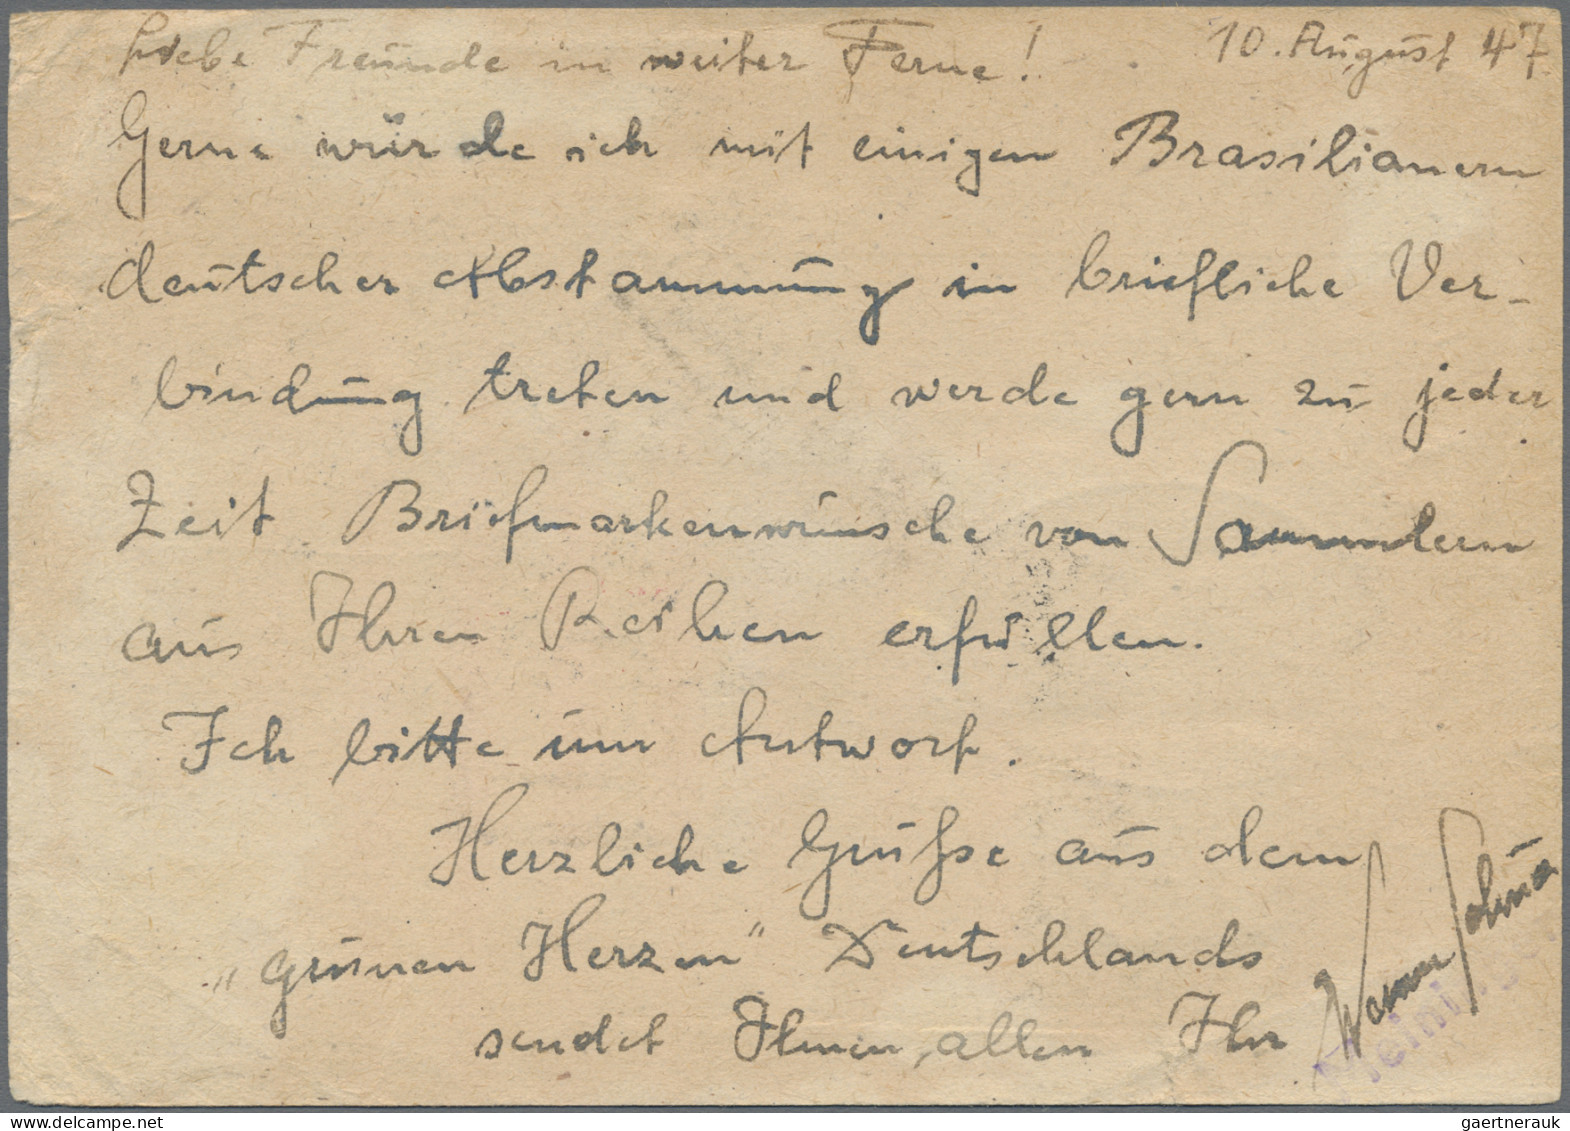 Liebe Freunde in weiter Ferne! 10. August 47
Gerne würde ich mit einigen Brasilianern
deutscher Abstammung in briefliche Ver-
bindung treten und werde gern zu jeder
Zeit Briefmarkenwünsche von Sammlern
aus Ihren Reihen erfüllen.
Ich bitte um Antwort.
Herzliche Grüsse aus dem
„grünen Herzen" Deutschlands
sendet Ihnen allen Ihr
gaertnerauk
delcampe.net